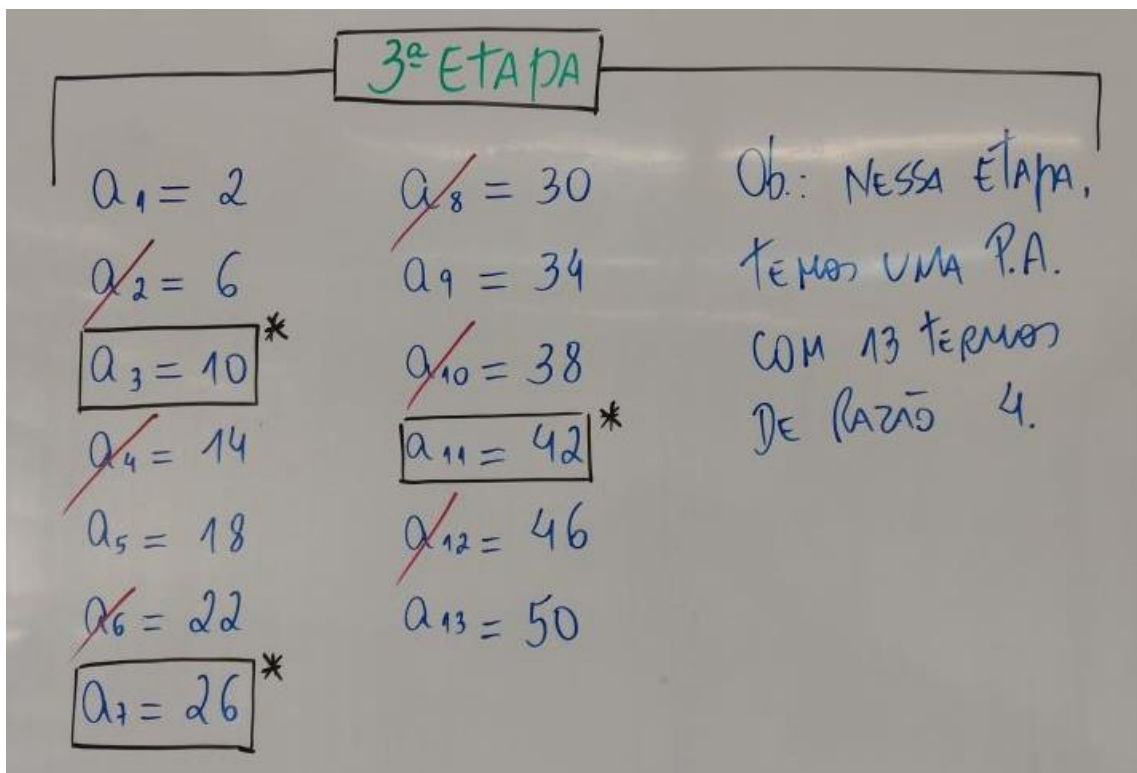 3ª ETAPA
a1 = 2
a2 = 6
a3 = 10 *
a4 = 14
a5 = 18
a6 = 22
a7 = 26 *
a8 = 30
a9 = 34
a10 = 38
a11 = 42 *
a12 = 46
a13 = 50
Ob.: NESSA ETAPA,
TEMOS UMA P.A.
COM 13 TERMOS
DE RAZÃO 4.